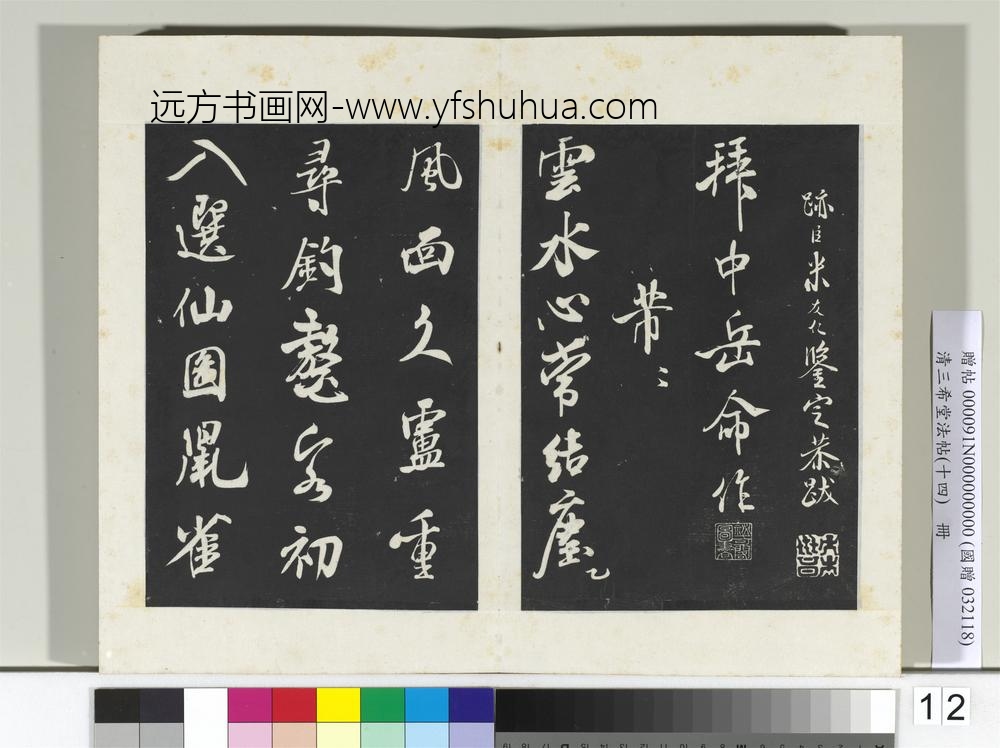 远方书画网-www.yfshuhua.com
跡臣米友仁鑒定恭跋
拜中岳命作
芾〻
雲水心常結塵
風面久盧重
尋釣鼇客初
入選仙圖鼠雀
贈帖 000091N000000000 (國贈 032118)
清三希堂法帖(十四) 冊
12